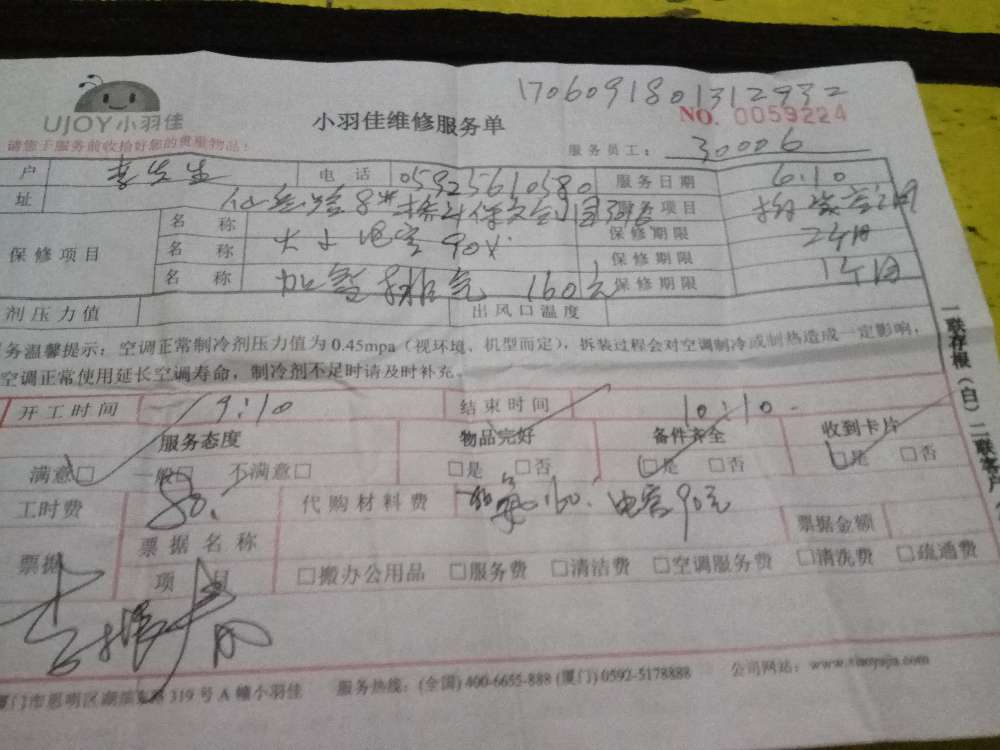 1706091801312932
UJOY小羽佳
小羽佳维修服务单
NO. 0059224
请您于服务前收拾好您的贵重物品!
服务员工: 30006
户 李先生 电话 05925610580 服务日期 6.10
址 8# 服务项目
保修项目 名称 保修期限
名称 电容 90 保修期限
名称 加氢排气 160元 保修期限
剂压力值 出风口温度
务温馨提示:空调正常制冷剂压力值为0.45mpa(视环境、机型而定),拆装过程会对空调制冷或制热造成一定影响,
空调正常使用延长空调寿命,制冷剂不足时请及时补充。
开工时间 9:10 结束时间 10:10
服务态度 物品完好 备件齐全 收到卡片
满意□ 一般□ 不满意□ □是 □否 □是 □否 □是 □否
工时费 80. 代购材料费 160. 电容90元 票据金额
票据 票据名称
项目 □搬办公用品 □服务费 □清洁费 □空调服务费 □清洗费 □疏通费
一联存根(白) 二联客户
厦门市思明区湖滨东路319号A幢小羽佳 服务热线:(全国)400-6655-888 (厦门)0592-5178888 公司网站:www.xiaoyujia.com